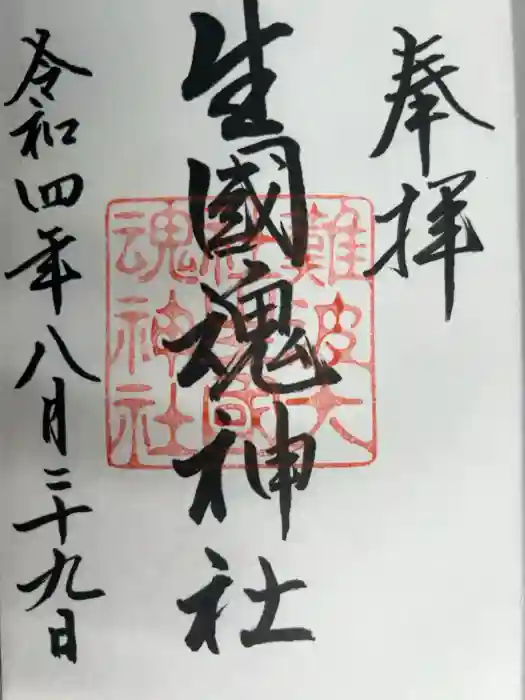 奉拝
生國魂神社
難波大
社生國
魂神社
令和四年八月二十九日